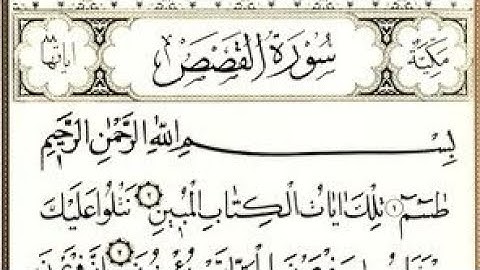 مَكِّيَّة سُورَةُ القَصَصِ اٰیاتُها ٨٨
بِسْمِ اللهِ الرَّحْمٰنِ الرَّحِيمِ
طٰسٓمٓ ١ تِلْكَ اٰيَاتُ الْكِتَابِ الْمُبِينِ ٢ نَتْلُوا عَلَيْكَ